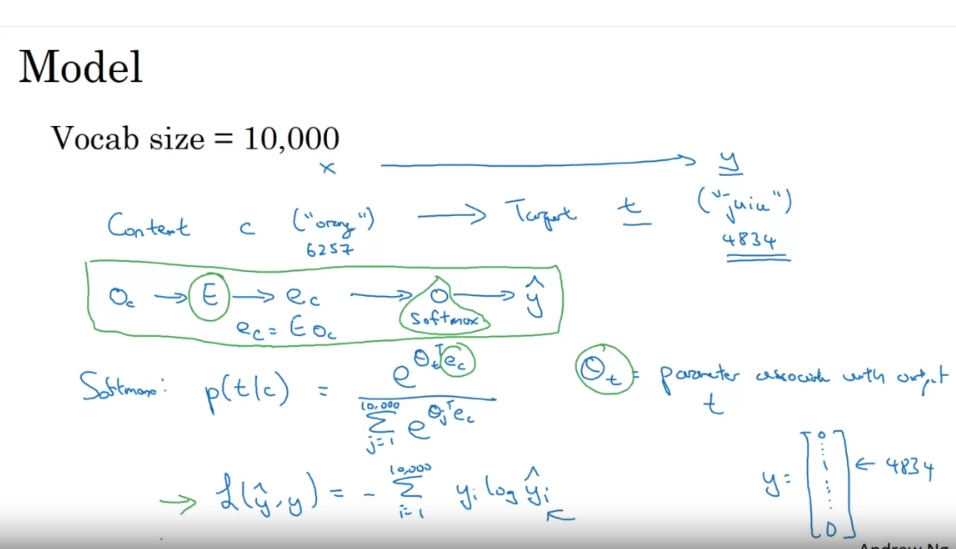 Model
Vocab size = 10,000
x → y
Content c ("orang") → Target t ("juice")
6257
4834
O_c → E → e_c → O → ŷ
softmax
e_c = E O_c
Softmax: p(t|c) = e^{θ_t^T e_c} / Σ_{j=1}^{10,000} e^{θ_j^T e_c}
θ_t = parameter associated with output t
ℒ(ŷ, y) = - Σ_{i=1}^{10,000} y_i log ŷ_i
y = [0 ⋮ 1 ⋮ 0] ← 4834
Andrew Ng